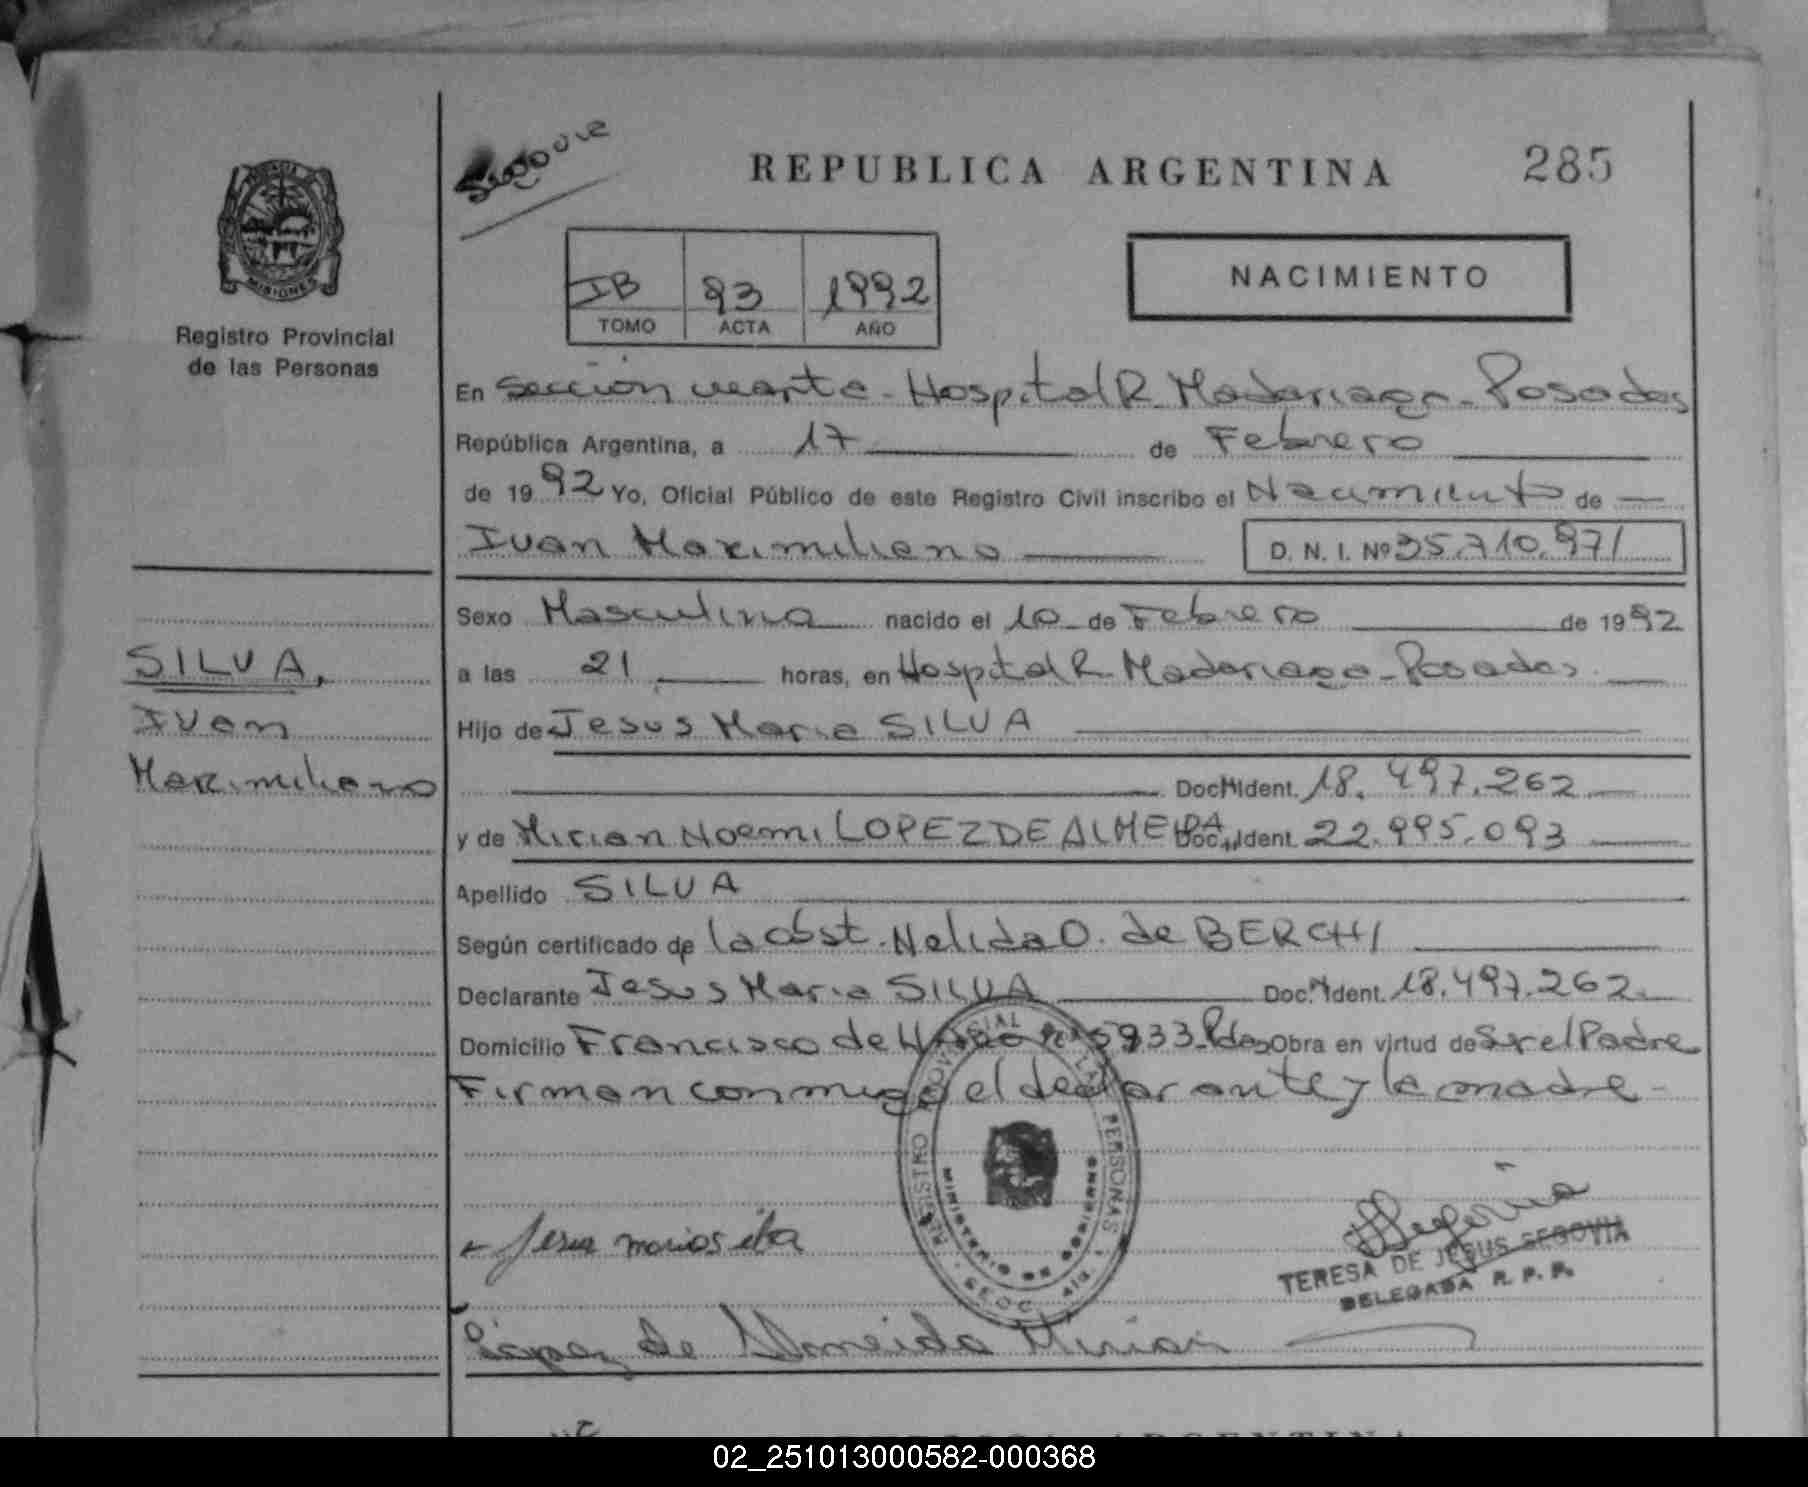 REPUBLICA ARGENTINA
285
IB 93 1992
TOMO ACTA AÑO
NACIMIENTO
MISIONES
Registro Provincial
de las Personas
En Sección cuarta - Hospital R. Madariaga - Posadas
República Argentina, a 17 de Febrero
de 1992 Yo, Oficial Público de este Registro Civil inscribo el Nacimiento de
Ivan Maximiliano D. N. I. Nº 35.710.971
Sexo Masculino nacido el 10 de Febrero de 1992
SILVA,
a las 21 horas, en Hospital R. Madariaga - Posadas.
Ivan
Hijo de Jesus Maria SILVA
Maximiliano
Doc. Ident. 18.497.262
y de Mirian Noemi LOPEZ DE ALMEIDA Doc. Ident. 22.995.093
Apellido SILVA
Según certificado de la obst. Nelida O. de BERCHI
Declarante Jesus Maria SILVA Doc. Ident. 18.497.262.
Domicilio Francisco de Haro Nº 5933 Pdas Obra en virtud de Ser el Padre
Firman conmigo el declarante y la madre -
REGISTRO PROVINCIAL DE LAS PERSONAS
MINISTERIO DE GOBIERNO
SECC. 4ta.
Jesus maria silva
TERESA DE JESUS SEGOVIA
DELEGADA R. P. P.
López de Almeida Mirian
02_251013000582-000368